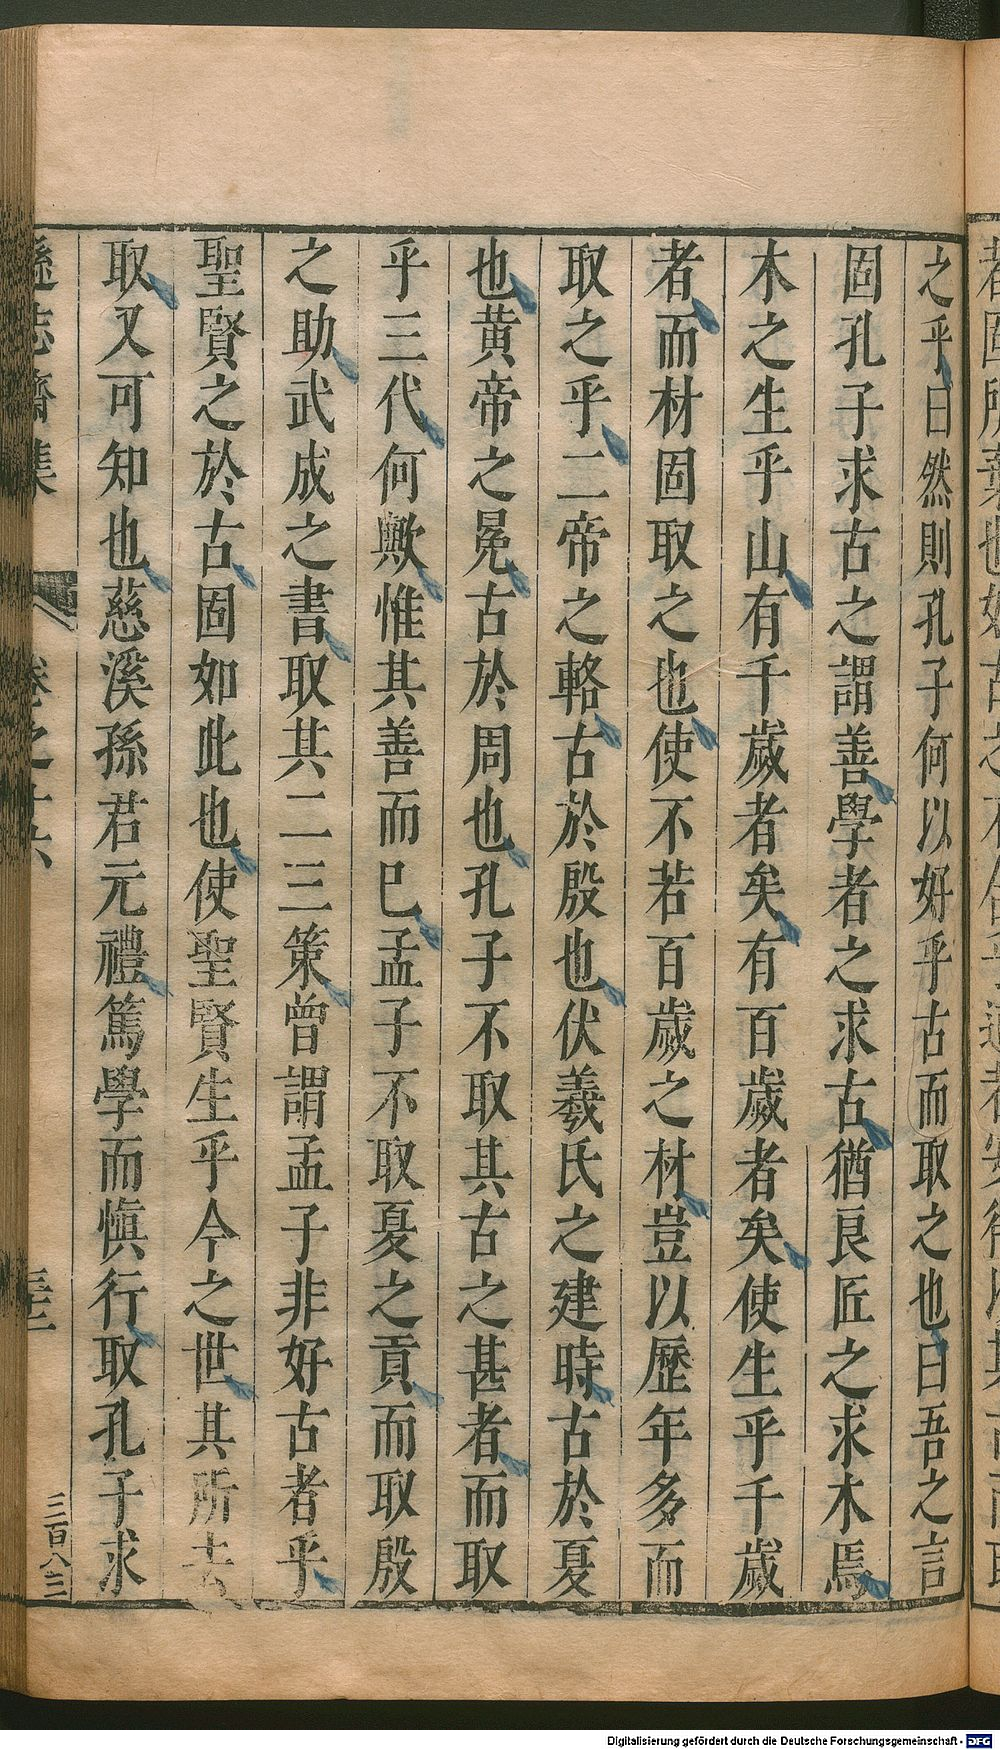 之乎曰然則孔子何以好乎古而取之也曰吾之言
固孔子求古之謂善學者之求古猶良匠之求木焉
木之生乎山有千歲者矣有百歲者矣使生乎千歲
者而材固取之也使不若百歲之材豈以歷年多而
取之乎二帝之輅古於殷也伏羲氏之建時古於夏
也黃帝之冕古於周也孔子不取其古之甚者而取
乎三代何歟惟其善而已孟子不取夏之貢而取殷
之助武成之書取其二三策曾謂孟子非好古者乎
聖賢之於古固如此也使聖賢生乎今之世其所去
取又可知也慈溪孫君元禮篤學而慎行取孔子求
遜志齋集
卷之十六
三百八三
Digitalisierung gefördert durch die Deutsche Forschungsgemeinschaft - DFG